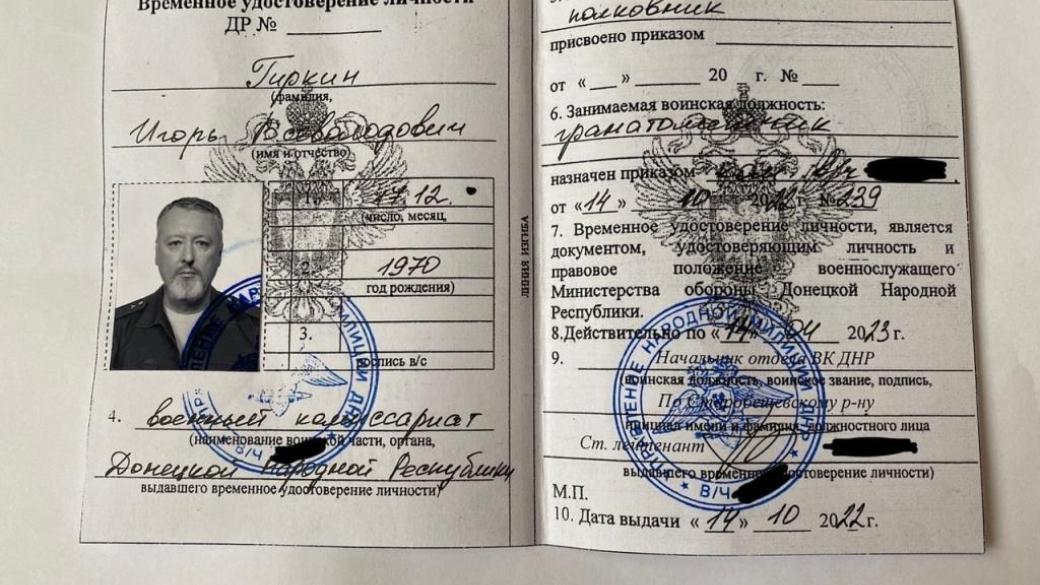 Временное удостоверение личности
ДР №
Гиркин
(фамилия,
Игорь Всеволодович
(имя и отчество)
1. 17.12.
(число, месяц,
2. 1970
год рождения)
3.
подпись в/с
4. военный комиссариат
(наименование воинской части, органа,
Донецкой Народной Республики
выдавшего временное удостоверение личности)
В/Ч
ЛИНИЯ ИЗГИБА
полковник
присвоено приказом
от « » 20 г. №
6. Занимаемая воинская должность:
гранатометчик
назначен приказом в/ч
от «14» 10 2022 г. №239
7. Временное удостоверение личности, является
документом, удостоверяющим личность и
правовое положение военнослужащего
Министерства обороны Донецкой Народной
Республики.
8.Действительно по «14» 04 2023 г.
9. Начальник отдела ВК ДНР
(воинская должность, воинское звание, подпись,
По Старобешевскому р-ну
инициал имени и фамилия, должностного лица
Ст. лейтенант
выдавшего временное удостоверение личности)
УПРАВЛЕНИЕ НАРОДНОЙ МИЛИЦИИ ДНР
В/Ч
М.П.
10. Дата выдачи «14» 10 2022 г.